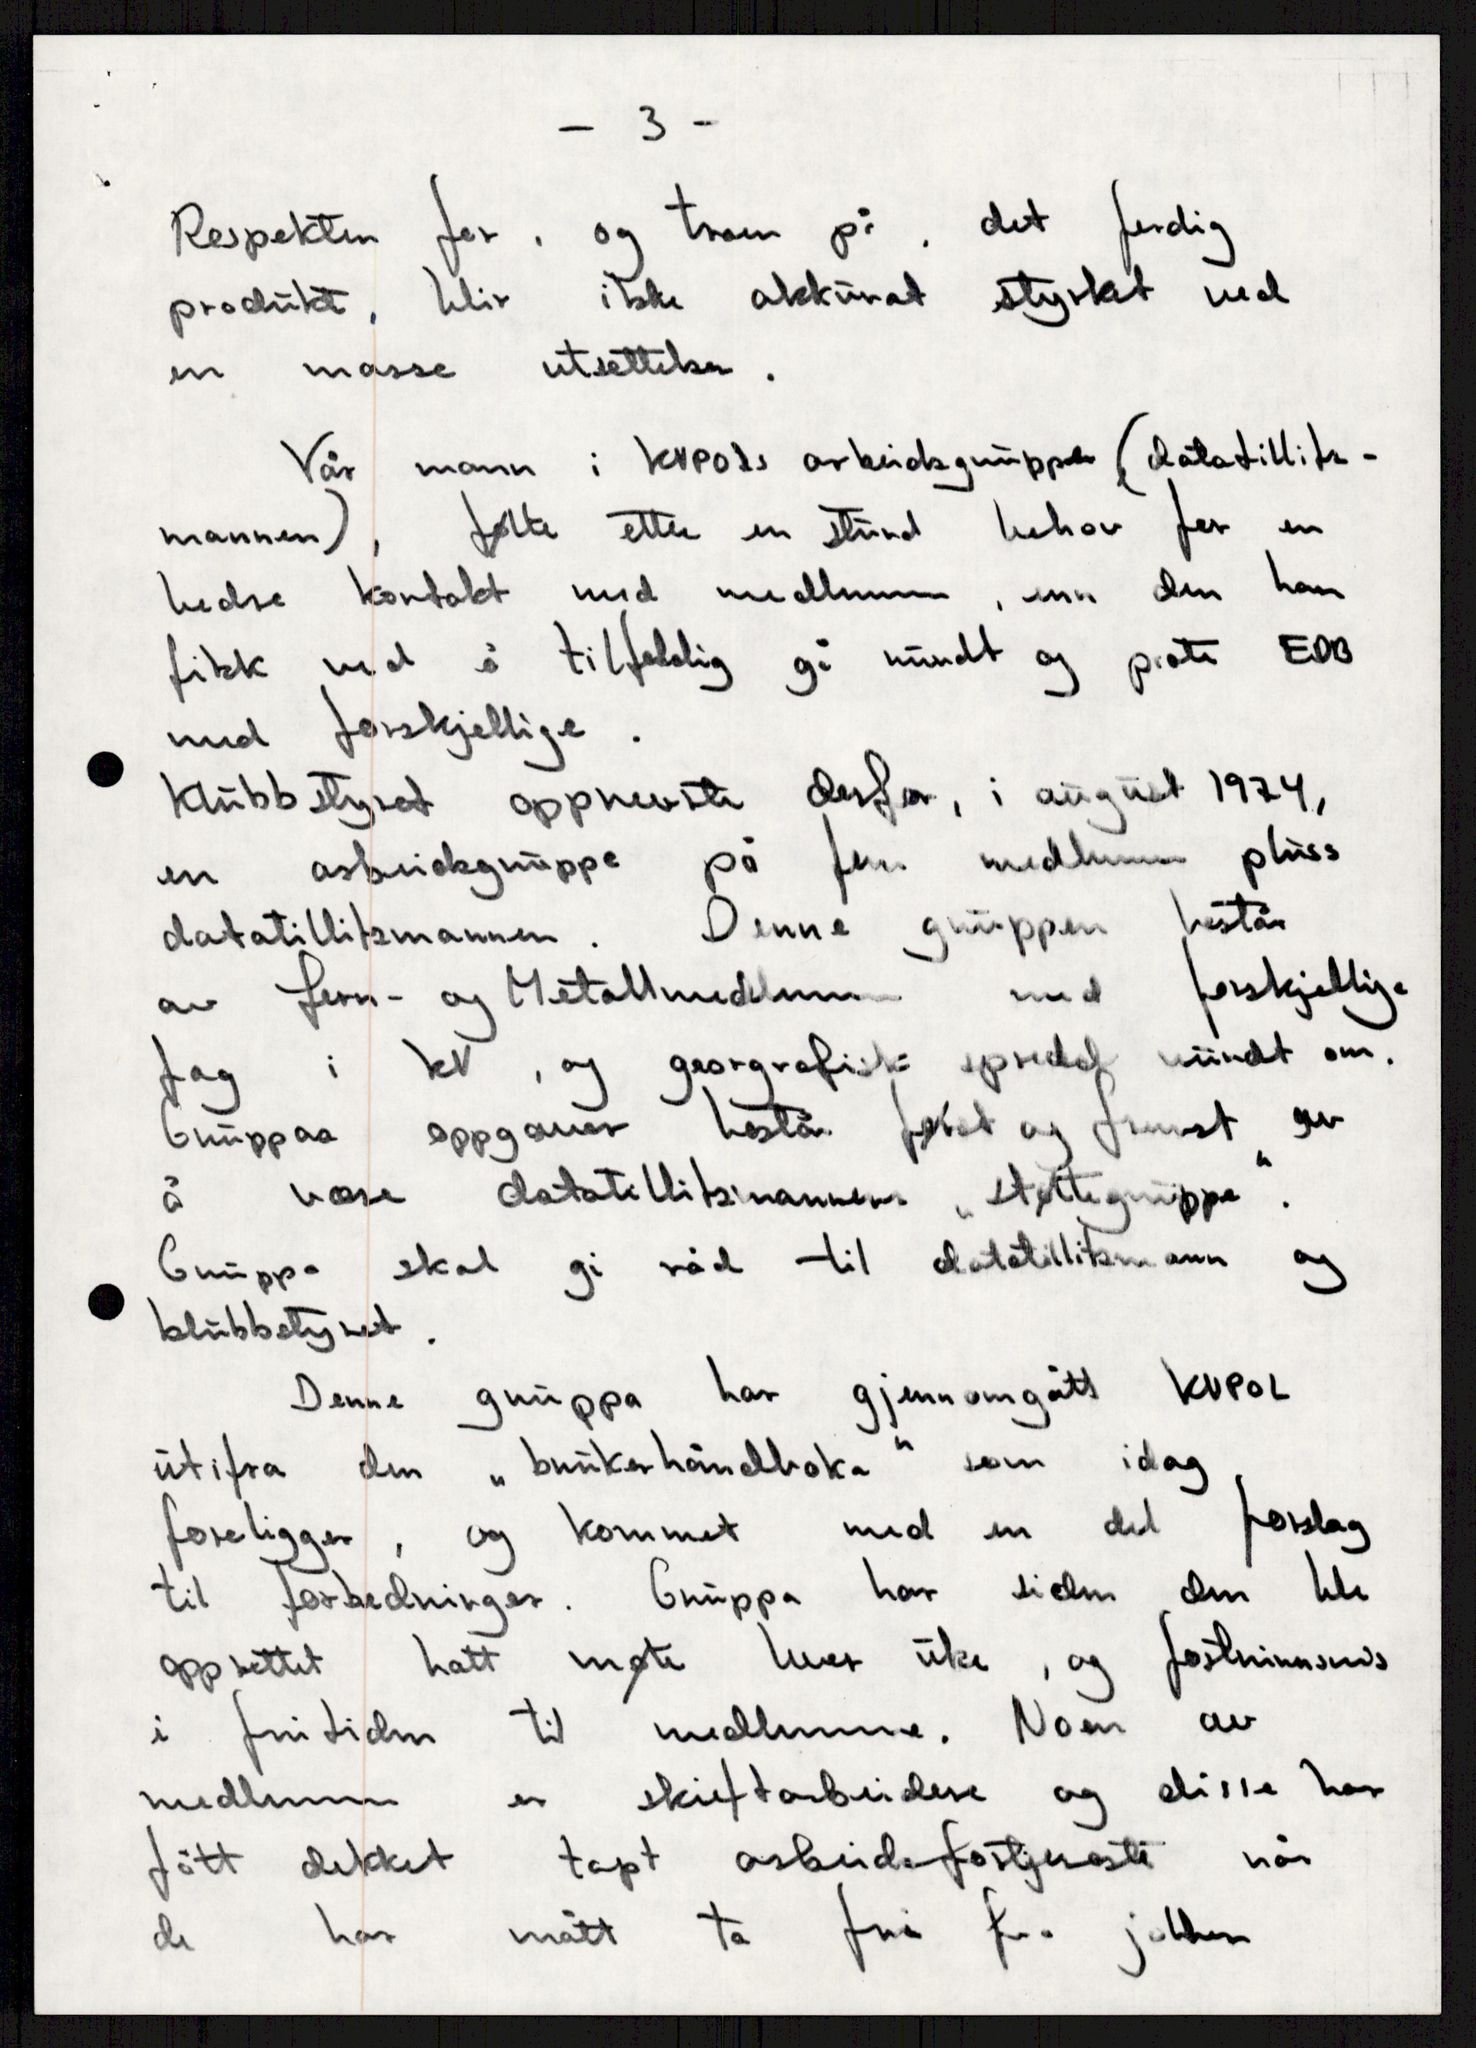 - 3 -
Respekten for, og troen på, det ferdig
produkt, blir ikke akkurat styrket ved
en masse utsettelser.
Vår mann i KVPOLs arbeidsgruppe (datatillits-
mannen), følte etter en stund behov for en
bedre kontakt med medlemmene, enn den han
fikk ved å tilfeldig gå rundt og prate EDB
med forskjellige.
Klubbstyret oppnevnte derfor, i august 1974,
en arbeidsgruppe på fem medlemmer pluss
datatillitsmannen. Denne gruppen består
av Jern- og Metallmedlemmer med forskjellige
fag i KV, og georgrafisk spredd rundt om.
Gruppas oppgaver består først og fremst av
å være datatillitsmannens „støttegruppe".
Gruppa skal gi råd til datatillitsmann og
klubbstyret.
Denne gruppa har gjennomgått KVPOL
utifra den „brukerhåndboka" som idag
foreligger, og kommet med en del forslag
til forbedringer. Gruppa har siden den ble
opprettet hatt møte hver uke, og fortrinnsvis
i fritiden til medlemmene. Noen av
medlemmene er skiftarbeidere og disse har
fått dekket tapt arbeidsfortjeneste når
de har mått ta fri fra jobben